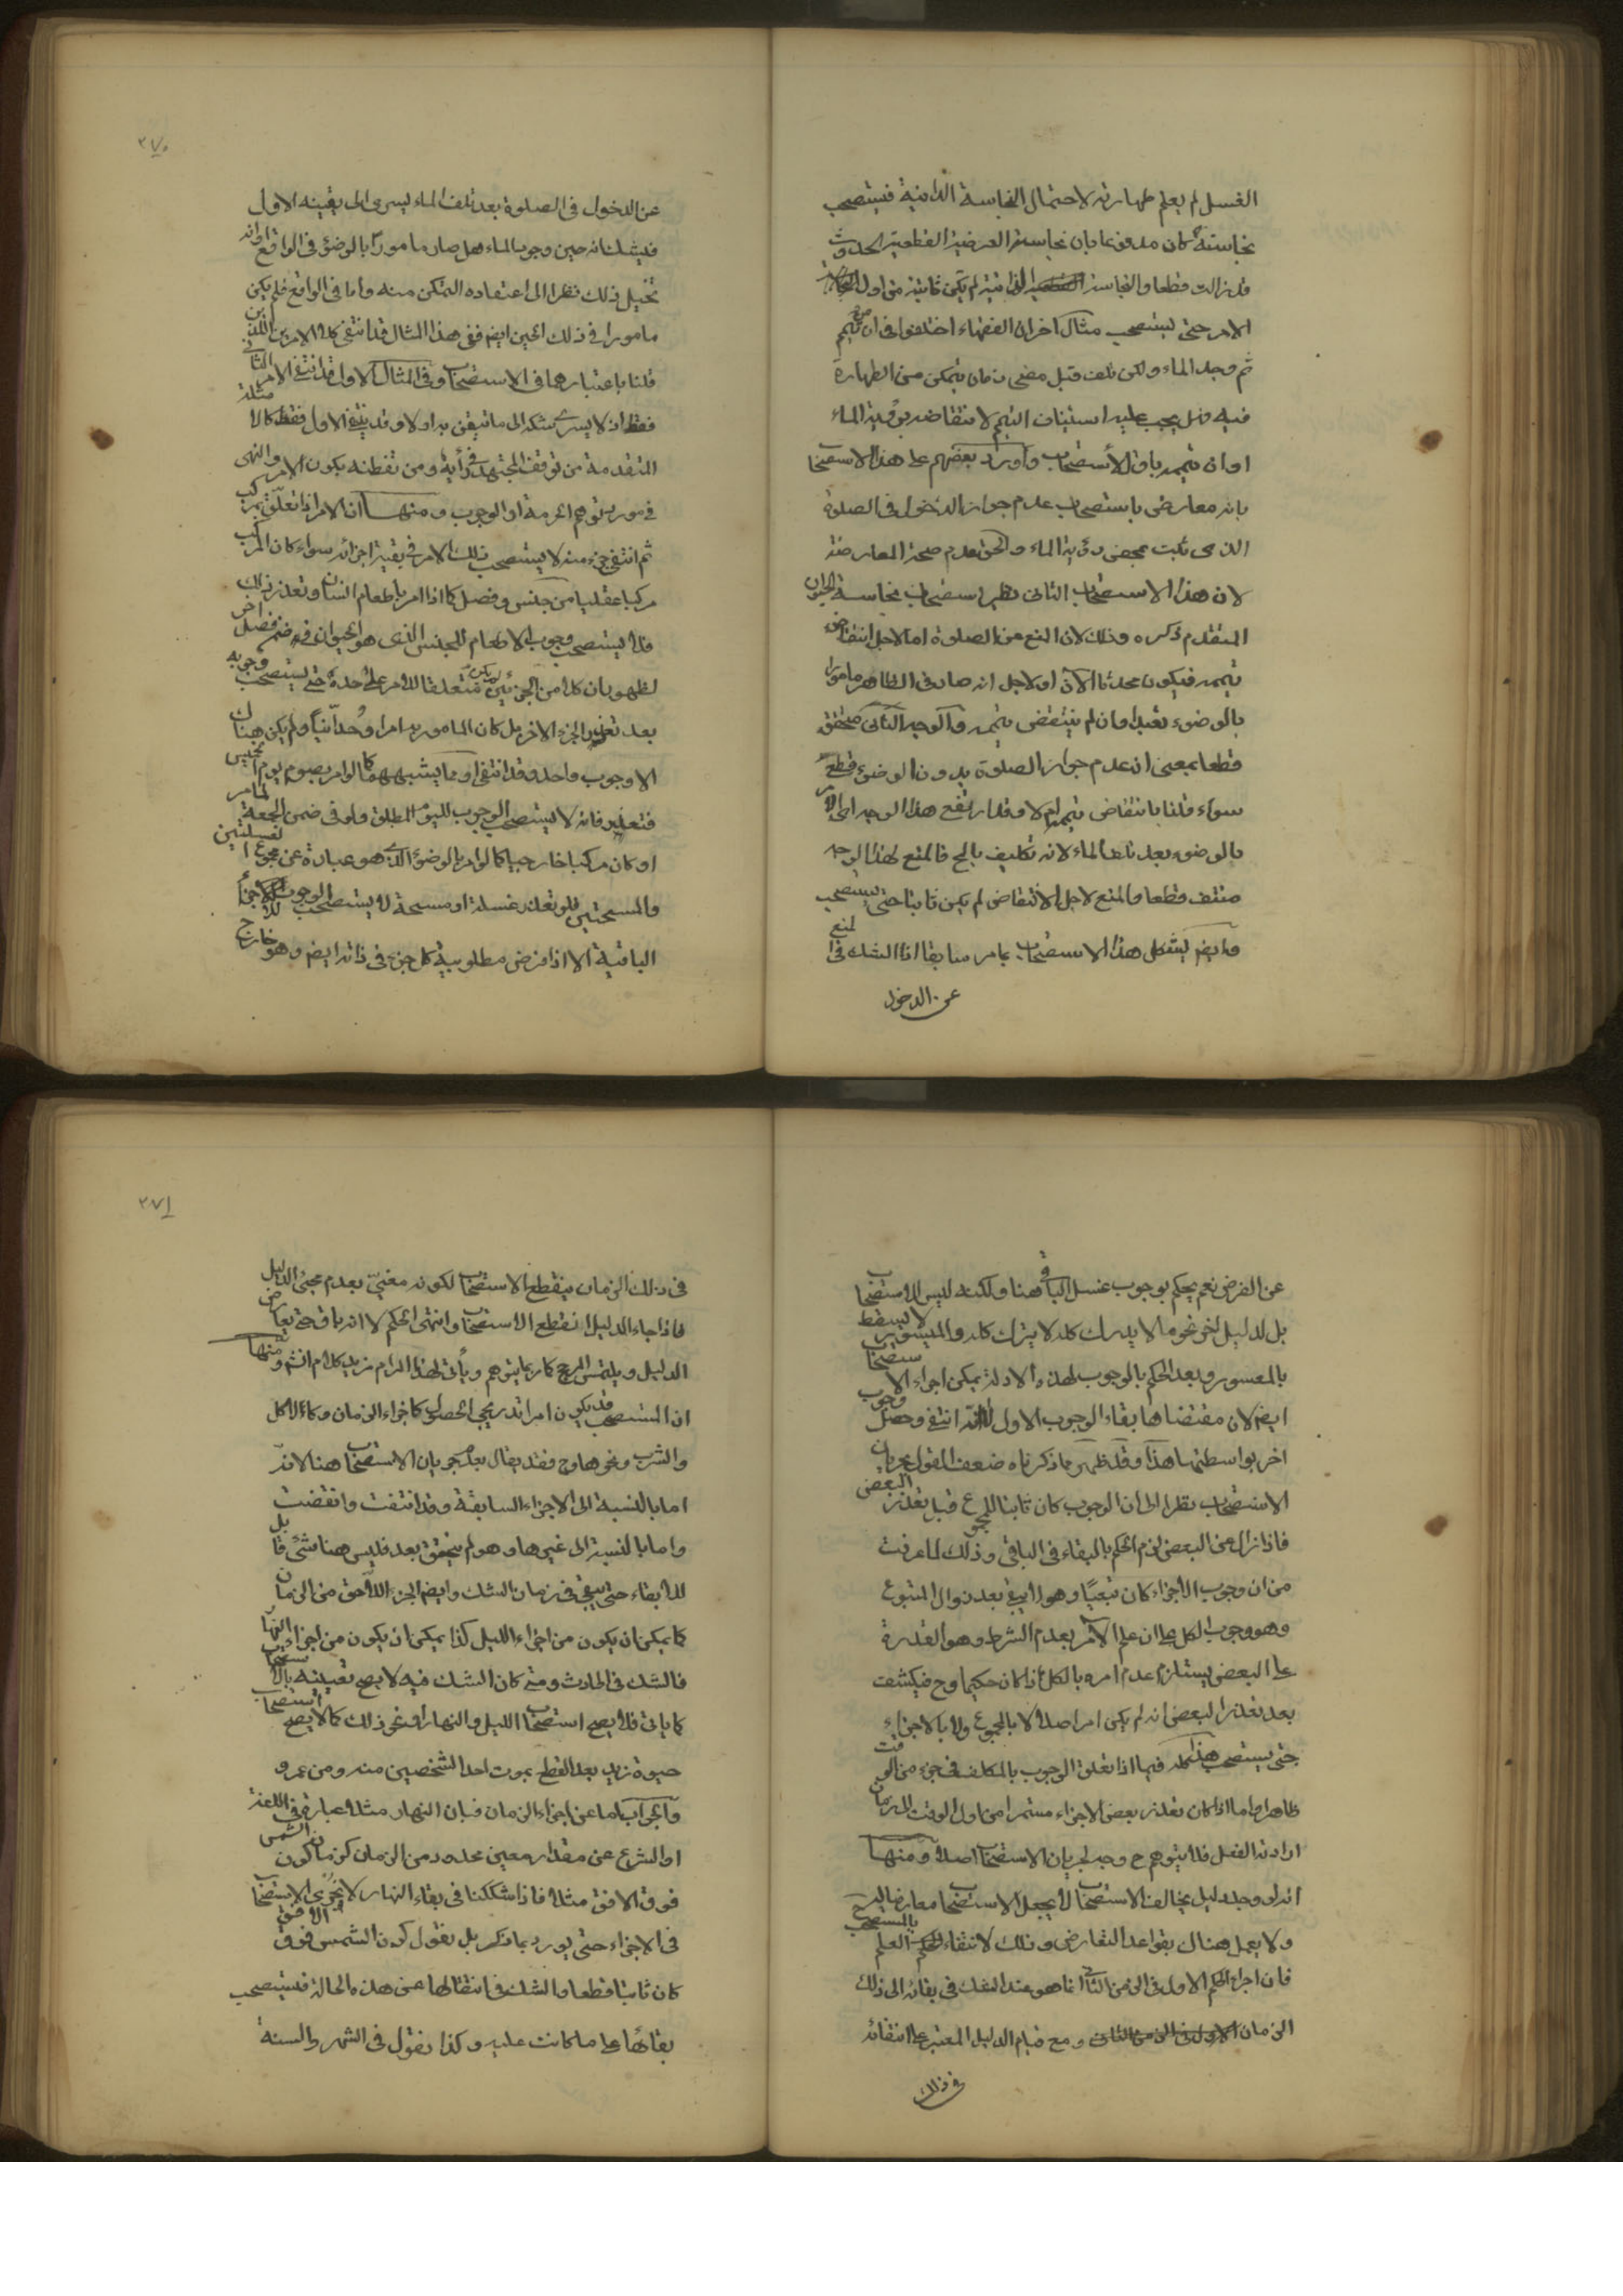 الغسل لم يعلم طهارته لاحتمال النجاسة الذاتية فيستصحب
نجاسته كان مدفوعا بان نجاسته العرضية القطعية الحدوث
قد زالت قطعا والنجاسة الذاتية لم يكن ثابتة من اول
الامر حتى يستصحب مثال اخر ان الفقهاء اختلفوا في ان من تيمم
ثم وجد الماء ولكن تلف قبل مضى زمان يتمكن من الطهارة
فيه فهل يجب عليه استيناف التيمم لانتقاضه برؤية الماء
او ان تيممه باق للاستصحاب واورد بعضهم على هذا الاستصحا
بانه معارض باستصحاب عدم جواز الدخول في الصلوة
الذى ثبت بمحض رؤية الماء والحق عدم صحة المعارضة
لان هذا الاستصحاب الثانى نظير استصحاب نجاسة الحيوان
المتقدم ذكره وذلك لان المنع من الصلوة اما لاجل انتقاض
تيممه فيكون محدثا الان او لاجل انه صار في الظاهر مامورا
بالوضوء تعبدا وان لم ينتقض تيممه والوجه الثانى متحقق
قطعا بمعنى ان عدم جواز الصلوة بدون الوضوء قطعى
سواء قلنا بانتقاض تيممه ام لا وقد ارتفع هذا الوجه اى الامر
بالوضوء بعد تلف الماء لانه تكليف بالمح فالمنع لهذا الوجه
منتف قطعا والمنع لاجل الانتقاض لم يكن ثابتا حتى يستصحب
وايضم يشكل هذا الاستصحاب بما مر سابقا اذ الشك في المنع
عن الدخول
٣٧٠
عن الدخول في الصلوة بعد تلف الماء يسرى الى يقينه الاول
فيشك انه حين وجوب الماء هل صار مامورا بالوضؤ في الواقع او انه
تخيل ذلك نظرا الى اعتقاده التمكن منه واما في الواقع فلم يكن
مامورا في ذلك الحين ايضم ففي هذا المثال قد انتفى كلا الامرين اللذين
قلنا باعتبارهما في الاستصحاب وفي المثال الاول قد انتفى الامر الثانى
فقط اذ لا يسرى شكه الى ما تيقن به اولا وقد ينتفى الاول فقط كالامثلة
المتقدمة من توقف المجتهد في رأيه ومن تفطنه بكون الامر والنهى
في مورد توهم الحرمة او الوجوب ومنها ان الامر اذا تعلق بمركب
ثم انتفى جزء منه لا يستصحب ذلك الامر في بقية اجزائه سواء كان المركب
مركبا عقليا من جنس وفصل كما اذا امر باطعام انسان وتعذر ذلك
فلا يستصحب وجوب الاطعام للجنس الذى هو الحيوان في ضمن فصل اخر
لظهور ان كلا من الجزئين لم يكن متعلقا للامر على حدة حتى يستصحب وجوبه
بعد تعذر الجزء الاخر بل كان المامور به امرا وحدانيا ولم يكن هناك
الا وجوب واحد وقد انتفى او ما يشبههما كما لو امر بصوم يوم الخميس
فتعذر فانه لا يستصحب الوجوب لليوم المطلق ولو في ضمن الجمعة لما مر
او كان مركبا خارجيا كما لو امر بالوضوء الذى هو عبارة عن مجموع الغسلتين
والمسحتين فلو تعذر غسلة او مسحة لا يستصحب الوجوب للاجزأ
الباقية الا اذا فرض مطلوبية كل جزء في ذاته ايضم وهو خارج
عن الفرض نعم يحكم بوجوب غسل الباقى هنا ولكنه ليس للاستصحاب
بل لدليل اخر نحو ما لا يدرك كله لا يترك كله والميسور لا يسقط
بالمعسور وبعد الحكم بالوجوب لهذه الادلة يمكن اجراء الاستصحاب
ايضم لان مقتضاها بقاء الوجوب الاول لا انه انتفى وحصل وجوب
اخر بواسطتها هذا وقد ظهر مما ذكرناه ضعف القول بجريان
الاستصحاب نظرا الى ان الوجوب كان ثابتا للمجموع قبل تعذر البعض
فاذا زال عن البعض لزم الحكم بالبقاء في الباقى وذلك لما عرفت
من ان وجوب الاجزاء كان تبعيا وهو لا يبقى بعد زوال المتبوع
وهو وجوب الكل على ان علم الآمر بعدم الشرط وهو القدرة
على البعض يستلزم عدم امره بالكل اذا كان حكيما وح فيكشف
بعد تعذر البعض انه لم يكن امر اصلا لا بالمجموع ولا بالاجزاء
حتى يستصحب هذا كله فيما اذا تعلق الوجوب بالمكلف في جزء من الوقت
ظاهرا واما اذا كان تعذر بعض الاجزاء مستمرا من اول الوقت الى زمان
ارادة الفعل فلا يتوهم ح وجه لجريان الاستصحاب اصلا ومنها
انه لو وجد دليل يخالف الاستصحاب لا يجعل الاستصحاب معارضا له
ولا يعمل هناك بقواعد التعارض وذلك لانتفاء العلم بالمستصحب
فان اجراء الحكم الاول في الزمن الثانى انما هو عند الشك في بقائه الى ذلك
الزمان ومع قيام الدليل المعتبر على انتفائه
في ذلك
٣٧١
في ذلك الزمان ينقطع الاستصحاب لكونه مغيى بعدم مجئ الدليل
فاذا جاء الدليل انقطع الاستصحاب وانتهى الحكم لا انه باق حتى يعارض
الدليل ويلتمس المرجح كما ربما يتوهم ويأتى لهذا المرام مزيد كلام انشم ومنها
ان المستصحب قد يكون امرا تدريجى الحصول كاجزاء الزمان وكالاكل
والشرب ونحوها وح فقد يقال بعدم جريان الاستصحاب هنا لانه
اما بالنسبة الى الاجزاء السابقة وقد انتفت وانقضت
واما بالنسبة الى غيرها وهو لم يتحقق بعد فليس هنا شئ قابل
للابقاء حتى يبقى في زمان الشك وايضم الجزء اللاحق من الزمان
كما يمكن ان يكون من اجزاء الليل كذا يمكن ان يكون من اجزاء النهار
فالشك في الحادث ومتى كان الشك فيه لا يصح تعيينه بالاستصحاب
كما ياتى فلا يصح استصحاب الليل والنهار او نحو ذلك كما لا يصح استصحاب
حيوة زيد بعد القطع بموت احد الشخصين منه ومن عمرو
والجواب اما عن اجزاء الزمان فبان النهار مثلا عبارة في اللغة
او الشرع عن مقدار معين محدود من الزمان كزمان كون الشمس
فوق الافق مثلا فاذا شككنا في بقاء النهار لا نجرى الاستصحاب
في الاجزاء حتى يورد بما ذكر بل نقول كون الشمس فوق الافق
كان ثابتا قطعا والشك في انتقالها عن هذه الحالة فيستصحب
بقائها على ما كانت عليه وكذا نقول في الشهر والسنة